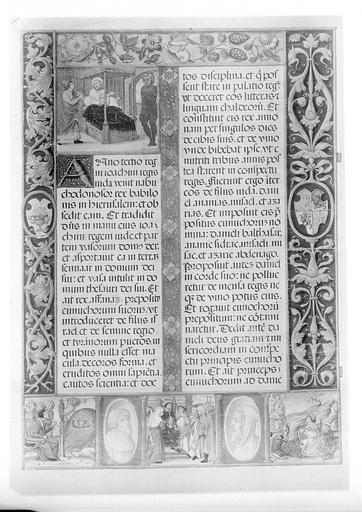 Anno tertio reg
ni ioachim regis
iuda venit nabu
chodonosor rex babilo
nis in hierusalem: et ob
sedit eam. Et tradidit
dñs in manu eius ioa
chim regem iude: et par
tem vasorum domus dei:
et asportauit ea in terrã
sennaar in domum dei
sui: et vasa intulit in do
mum thesauri dei sui. Et
ait rex asfanaz preposito
eunuchorum suorum: vt
introduceret de filiis is
rael et de semine regio
et tyrannorum pueros in
quibus nulla esset ma
cula decoros forma: et
eruditos omni sapiẽtia
cautos scientia: et doc
tos disciplina. et q̃ pos
sent stare in palatio regis
vt doceret eos litteras et
linguam chaldeorũ. Et
constituit eis rex anno
nam per singulos dies
de cibis suis. et de vino
vnde bibebat ipse. vt e
nutriti tribus annis pos
tea starent in conspectu
regis. Fuerunt ergo inter
eos de filiis iuda. dani
el. ananias. misael. et aza
rias. Et imposuit eis p̃
positus eunuchorũ no
mina: danieli balthasar.
ananie sidrac. misaeli mi
sac. et azarie abdenago.
Proposuit autẽ daniel
in corde suo: ne pollue
retur de mensa regis ne
q̃ de vino potus eius.
Et rogauit eunuchorũ
prepositum: ne cõtami
naretur. Dedit autẽ da
nieli deus gratiam et mi
sericordiam in conspe
ctu principis eunucho
rum. Et ait princeps e
unuchorum ad danie